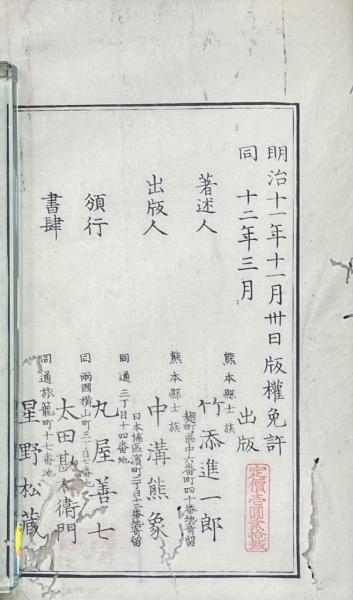 明治十一年十一月卅日版權免許
同 十二年三月 出版
定價壱圓貳拾錢
著述人
熊本縣士族
竹添進一郎
麹町區中六番町四十番地寄留
出版人
熊本縣士族
中溝熊象
日本橋區濱町二丁目十二番地寄留
頒行
書肆
同通三丁目十四番地
丸屋善七
同兩國橫山町三丁目二番地
太田勘右衛門
同通旅籠町十七番地
星野松藏